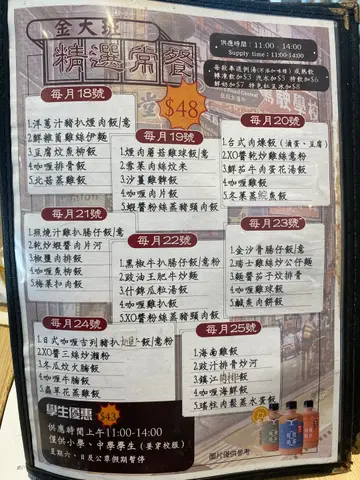 金大班
精選常餐
供應時間：11:00 - 14:00
Supply time：11:00-14:00
$48
每月18號
1.洋蔥汁豬扒煙肉飯/意
2.鮮雜菌雞絲伊麵
3.豆腐炆魚柳飯
4.咖喱豬腩飯
5.北菇蒸雞飯
每月19號
1.煙肉蘑菇雞球飯/意
2.雪菜肉絲炆米
3.沙薑雞髀飯
4.咖喱肉片飯
5.蝦醬粉絲蒸豬頸肉飯
每月20號
1.台式肉燥飯(滷蛋、豆腐)
2.XO醬乾炒雞絲意粉
3.鮮茄牛肉蛋花湯飯
4.咖喱雞飯
5.冬菜蒸鯇魚飯
每月21號
1.照燒汁雞扒腸仔飯/意
2.乾炒蝦醬肉片河
3.椒鹽肉排飯
4.咖喱魚柳飯
5.梅菜扣肉飯
每月22號
1.黑椒牛扒腸仔飯/意粉
2.豉油王肥牛炒麵
3.什錦瓜粒湯飯
4.咖喱雞扒飯
5.蝦醬粉絲蒸豬頸肉飯
每月23號
1.金沙骨腸仔飯/意
2.瑞士雞絲炒公仔麵
3.麵醬茄子炆排骨
4.咖喱雞球飯
5.鹹魚肉餅飯
每月24號
1.日式咖喱吉列豬扒飯/意粉
2.XO醬三絲炒瀨粉
3.冬瓜炆火腩飯
4.咖喱牛腩飯
5.蟲草花蒸雞飯
每月25號
1.海南雞飯
2.豉汁排骨炒河
3.鎮江肉排飯
4.咖喱海鮮飯
5.瑤柱肉鬆蒸水蛋飯
學生優惠
$43
供應時間上午11:00-14:00
僅供小、中學學生(要穿校服)
星期六、日及公眾假期暫停
圖片僅供參考